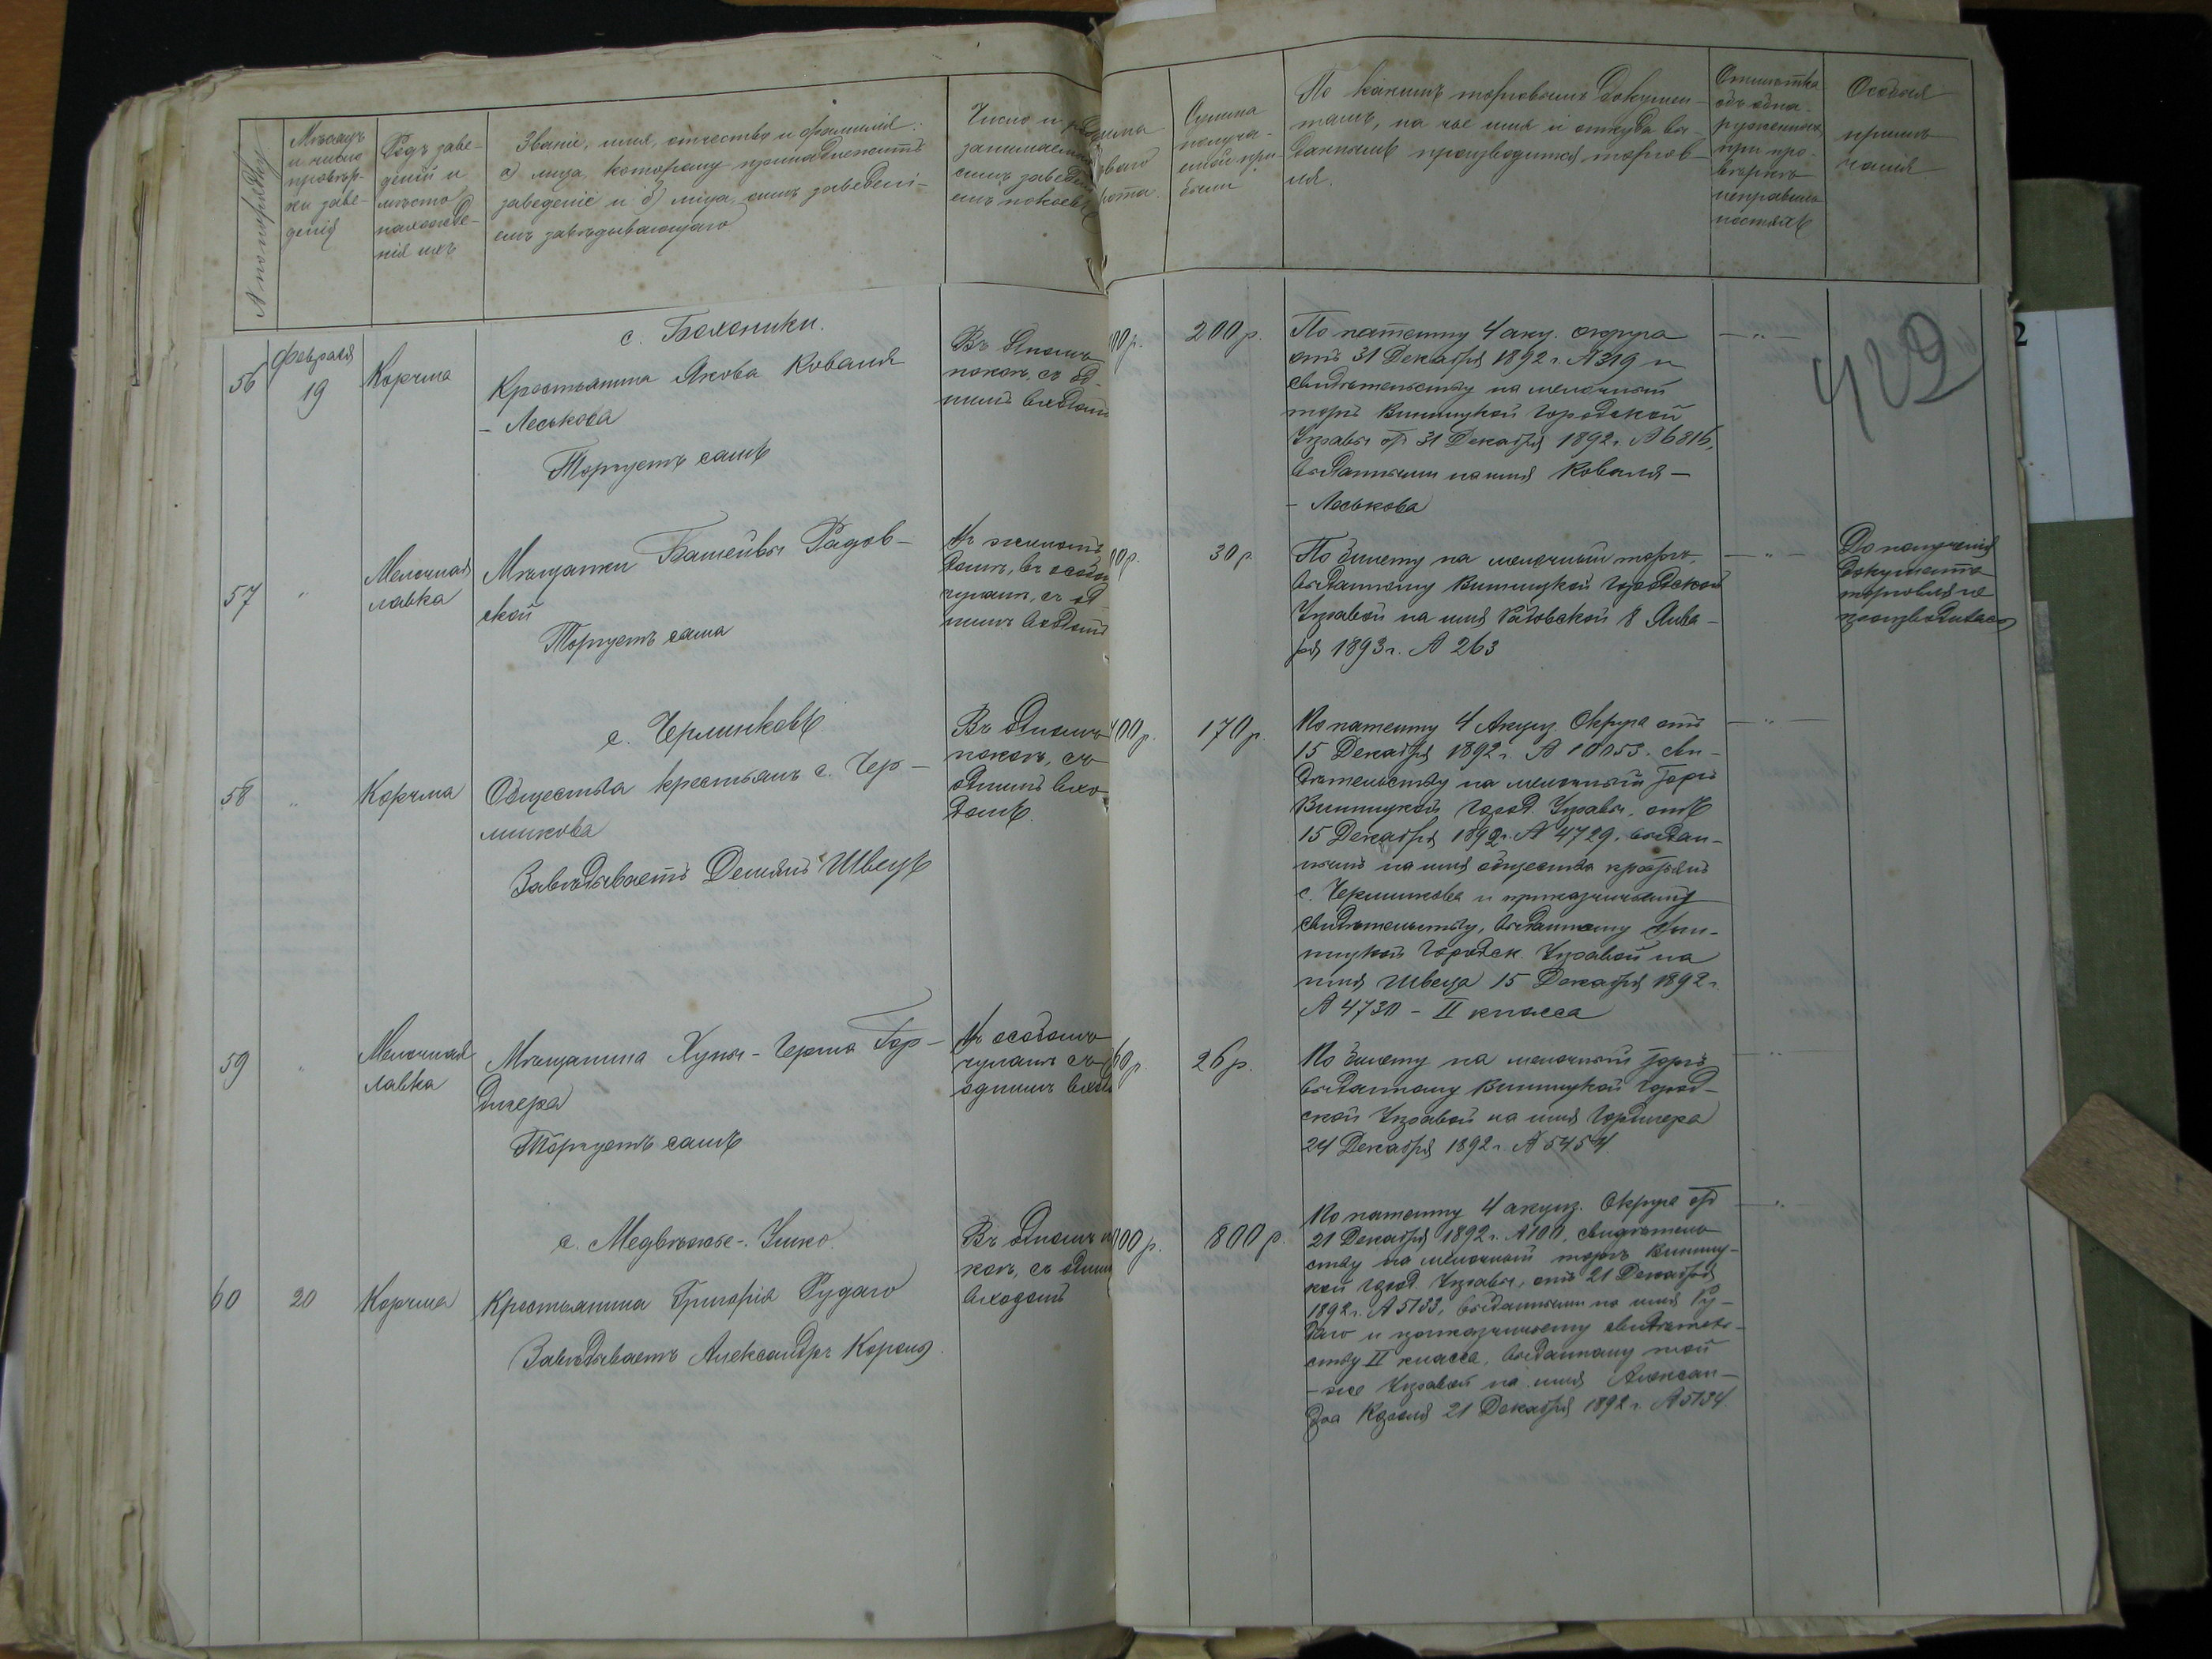 № по порядку
Мѣсяцъ
и число
провѣр-
ки заве-
денія
Родъ заве-
деній и
мѣсто
нахожде-
нія ихъ
Званіе, имя, отчество и фамилія:
а) лица, которому принадлежитъ
заведеніе и б) лица, симъ заведені-
емъ завѣдывающаго
Число и
занимаем
симъ заведен
емъ покоевъ
Сумма
получа-
емой при-
были
По какимъ торговымъ докумен-
тамъ, на чье имя и откуда вы-
даннымъ производится торгов-
ля.
Отмѣтка
объ обна-
руженныхъ
при про-
вѣркѣ
неправиль-
ностяхъ
Особыя
примѣ-
чанія
429
с. Бохоники.
56
Февраля
19
Корчма
Крестьянина Якова Коваля
- Леськова
Торгуетъ самъ
Въ одномъ
покоѣ, съ од-
нимъ входомъ
00р.
200 р.
По патенту 4 акц. округа
отъ 31 Декабря 1892 г. № 319 и
свидѣтельству на мелочный
торгъ Винницкой Городской
Управы от 31 Декабря 1892 г. № 6816,
выданными на имя Коваля -
- Леськова
— „ —
57
„
Мелочная
лавка
Мѣщанки Башейвы Радов-
ской
Торгуетъ сама
Въ жиломъ
домѣ, въ особом
чуланѣ, съ од-
нимъ входомъ
00р.
30 р.
По билету на мелочный торгъ,
выданному Винницкой Городской
Управой на имя Радовской 8 Янва-
ря 1893 г. № 263
— „ —
До полученія
документа
торговля не
производилась
с. Чермаковъ
58
„
Корчма
Общества крестьянъ с. Чер-
минкова
Завѣдываетъ Демьянъ Швецъ
Въ одномъ
покоѣ, съ
однимъ вхо-
домъ.
00р.
170 р.
По патенту 4 Акциз. Округа отъ
15 Декабря 1892 г. № 10053. сви-
дѣтельству на мелочный торгъ
Винницкой Город. Управы, отъ
15 Декабря 1892 г. № 4729, выдан-
нымъ на имя общества крестьянъ
с. Черминкова и приказчичьему
свидѣтельству, выданному Вин-
ницкой Городск. Управой на
имя Швеца 15 Декабря 1892 г.
№ 4730 - II класса
— „ —
59
„
Мелочная
лавка
Мѣщанина Хуны-Герша Гор-
дигера
Торгуетъ самъ
Въ особомъ
чуланѣ съ
однимъ входо
60р.
26 р.
По билету на мелочный торгъ
выданному Винницкой Город-
ской Управой на имя Гордигера
24 Декабря 1892 г. № 5454.
— „
с. Медвѣжье-Ушко.
60
20
Корчма
Крестьянина Григорія Рудаго
Завѣдываетъ Александръ Король.
Въ одномъ по
коѣ, съ однимъ
входомъ
00 р.
800 р.
По патенту 4 акциз. Округа от
21 Декабря 1892 г. № 100, свидѣтель-
ству на мелочный торгъ Винниц-
кой Город. Управы, отъ 21 Декабря
1892 г. № 5133, выданными на имя Ру-
даго и приказчичьему свидѣтель-
ству II класса, выданному той
-же Управой на имя Александ-
дра Короля 21 Декабря 1892 г. № 5134.
— „